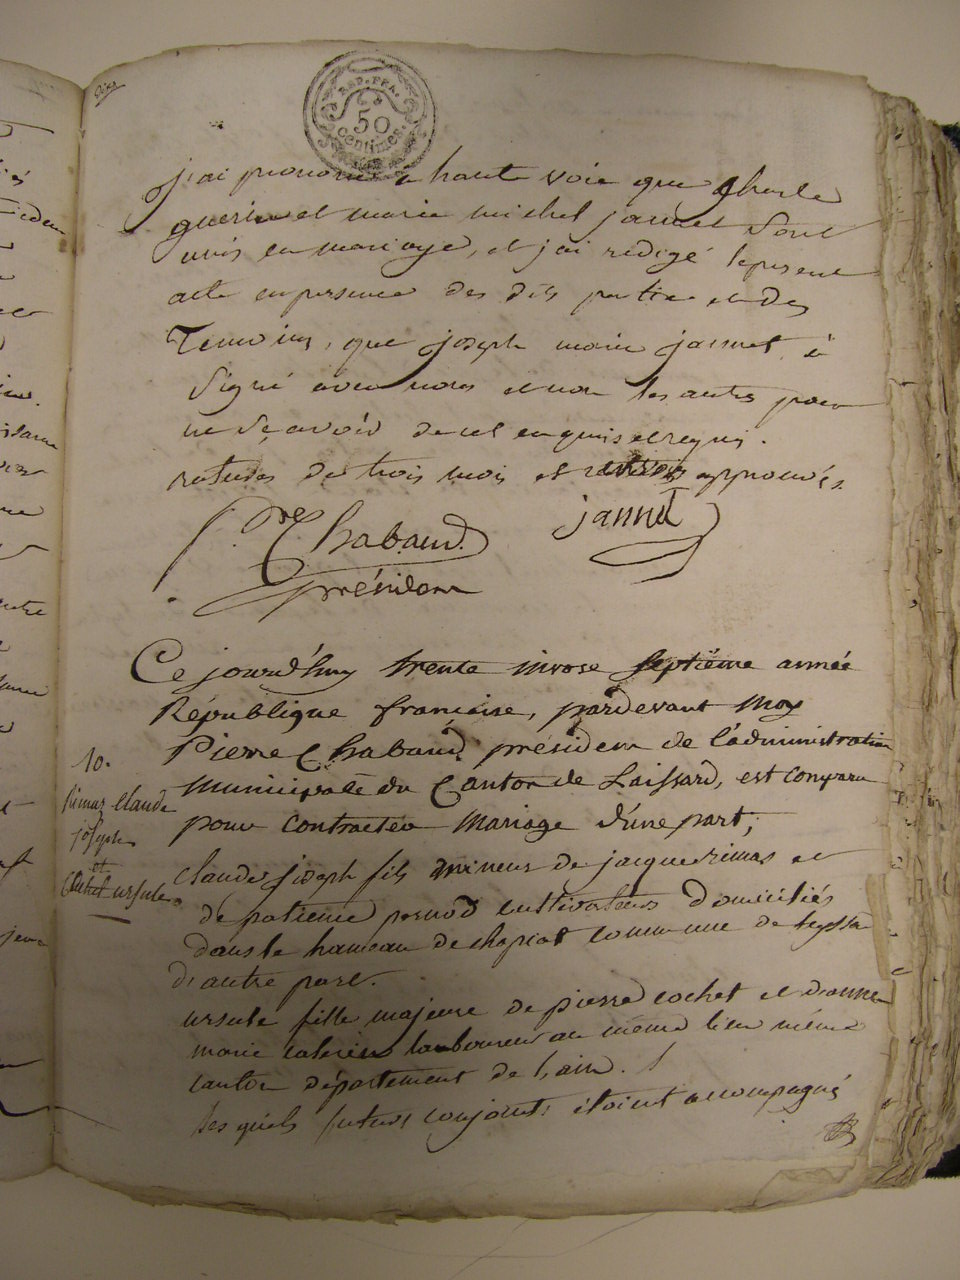 Dix
REP. FRA.
50
Centimes.
j'ai prononcé à haute voix que Charle
guerin et marie michel jannet sont
unis en mariage, et j'ai redigé le present
acte en presence des dits partie et des
Temoins, que joseph marie jannet à
signé avec nous et non les autres pour
ne sçavoir de cet enquis et requi.
ratures de trois mois et approuvés.
P.re Chabaud. jannet
président
Ce jourd'huy trente nivose septième année
République francaise, pardevant moy
Pierre Chabaud président de l'administration
municipale du Canton de Laissard, est comparu
pour contracter mariage d'une part;
10.
Rimas Claude
joseph
et
Cochet ursule.
Claude joseph fils mineur de jacque rimas et
de patience pernod cultivateurs domiciliés
dans le hameau de chapiat commune de
d'autre part.
ursule fille majeure de pierre cochet et d'anne
marie laboureur au même lieu même
canton département de l'ain.
lesquels futurs conjoints étoient accompagné